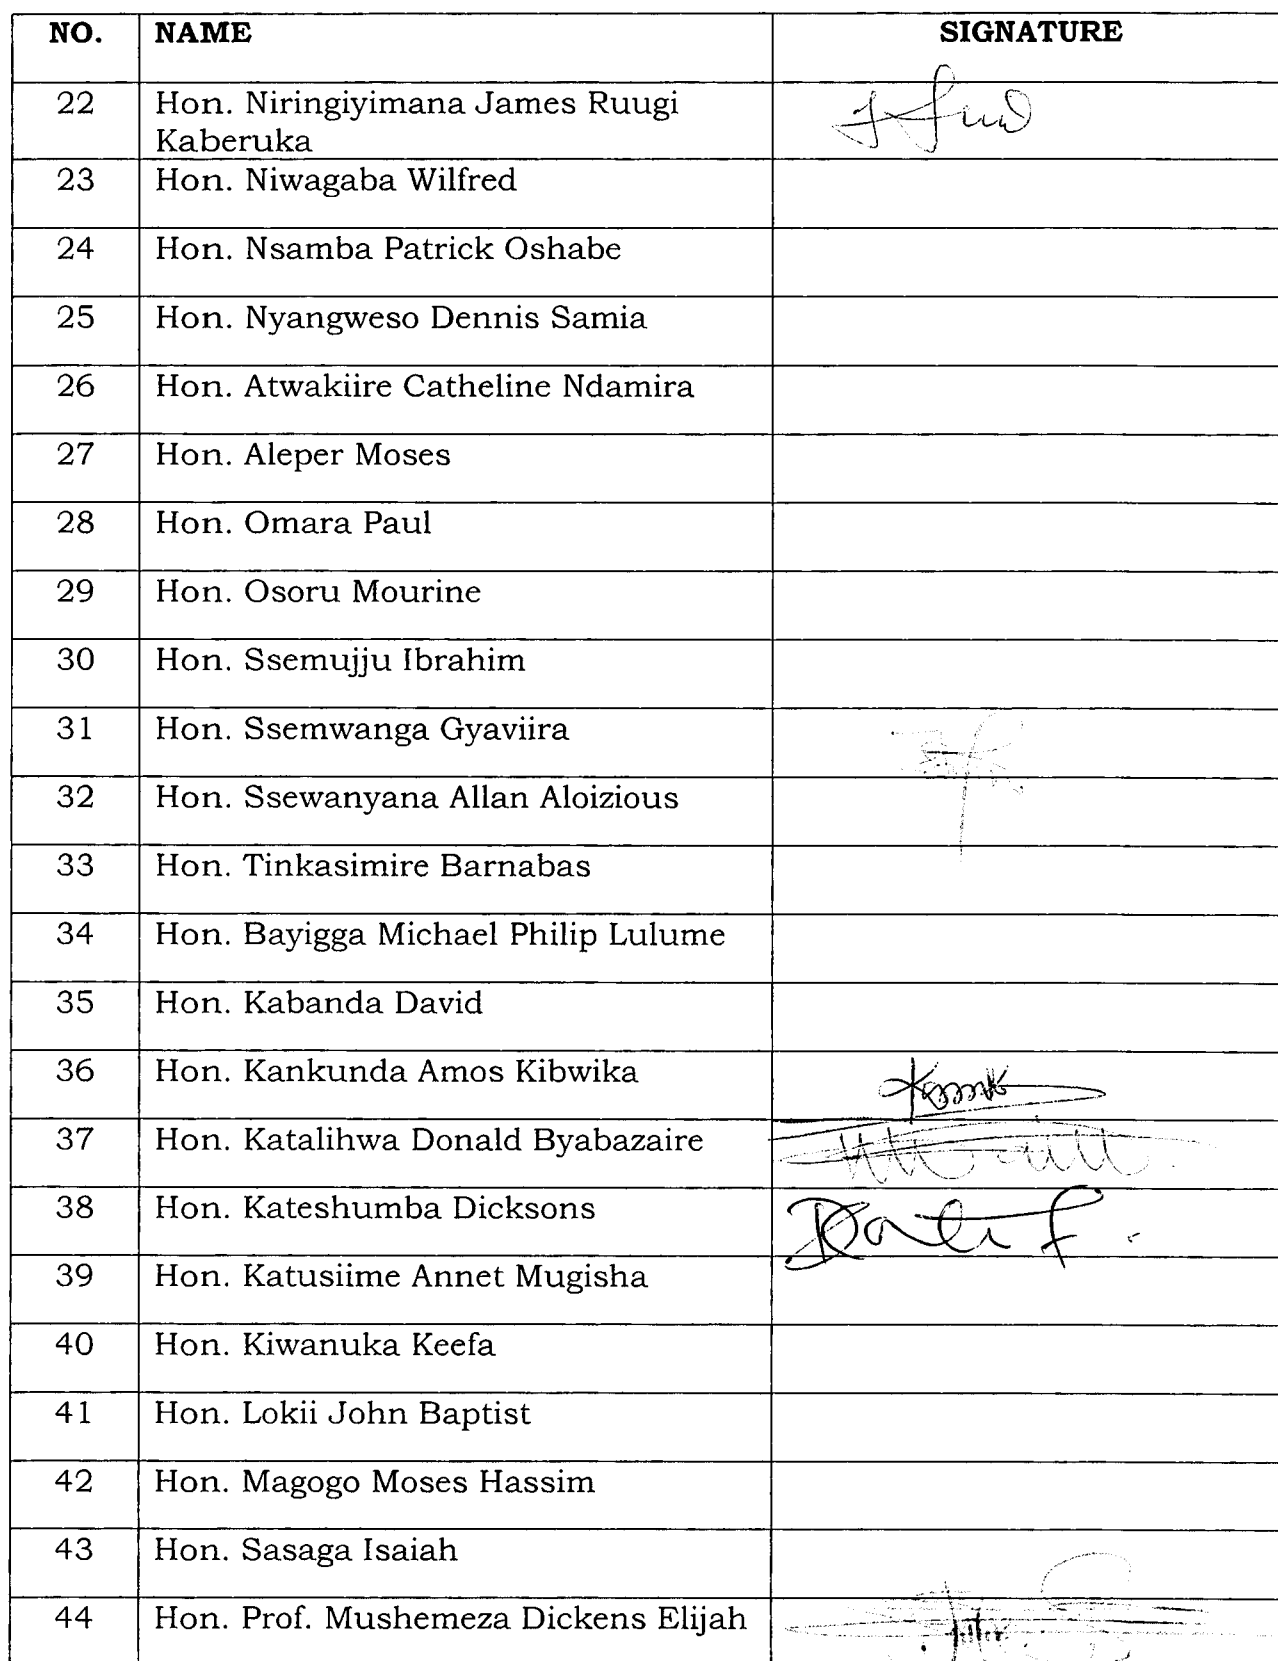 NO. NAME SIGNATURE
22 Hon. Niringiyimana James Ruugi
Kaberuka
23 Hon. Niwagaba Wilfred
24 Hon. Nsamba Patrick Oshabe
25 Hon. Nyangweso Dennis Samia
26 Hon. Atwakiire Catheline Ndamira
27 Hon. Aleper Moses
28 Hon. Omara Paul
29 Hon. Osoru Mourine
30 Hon. Ssemujju Ibrahim
31 Hon. Ssemwanga Gyaviira
32 Hon. Ssewanyana Allan Aloizious
33 Hon. Tinkasimire Barnabas
34 Hon. Bayigga Michael Philip Lulume
35 Hon. Kabanda David
36 Hon. Kankunda Amos Kibwika
37 Hon. Katalihwa Donald Byabazaire
38 Hon. Kateshumba Dicksons
39 Hon. Katusiime Annet Mugisha
40 Hon. Kiwanuka Keefa
41 Hon. Lokii John Baptist
42 Hon. Magogo Moses Hassim
43 Hon. Sasaga Isaiah
44 Hon. Prof. Mushemeza Dickens Elijah